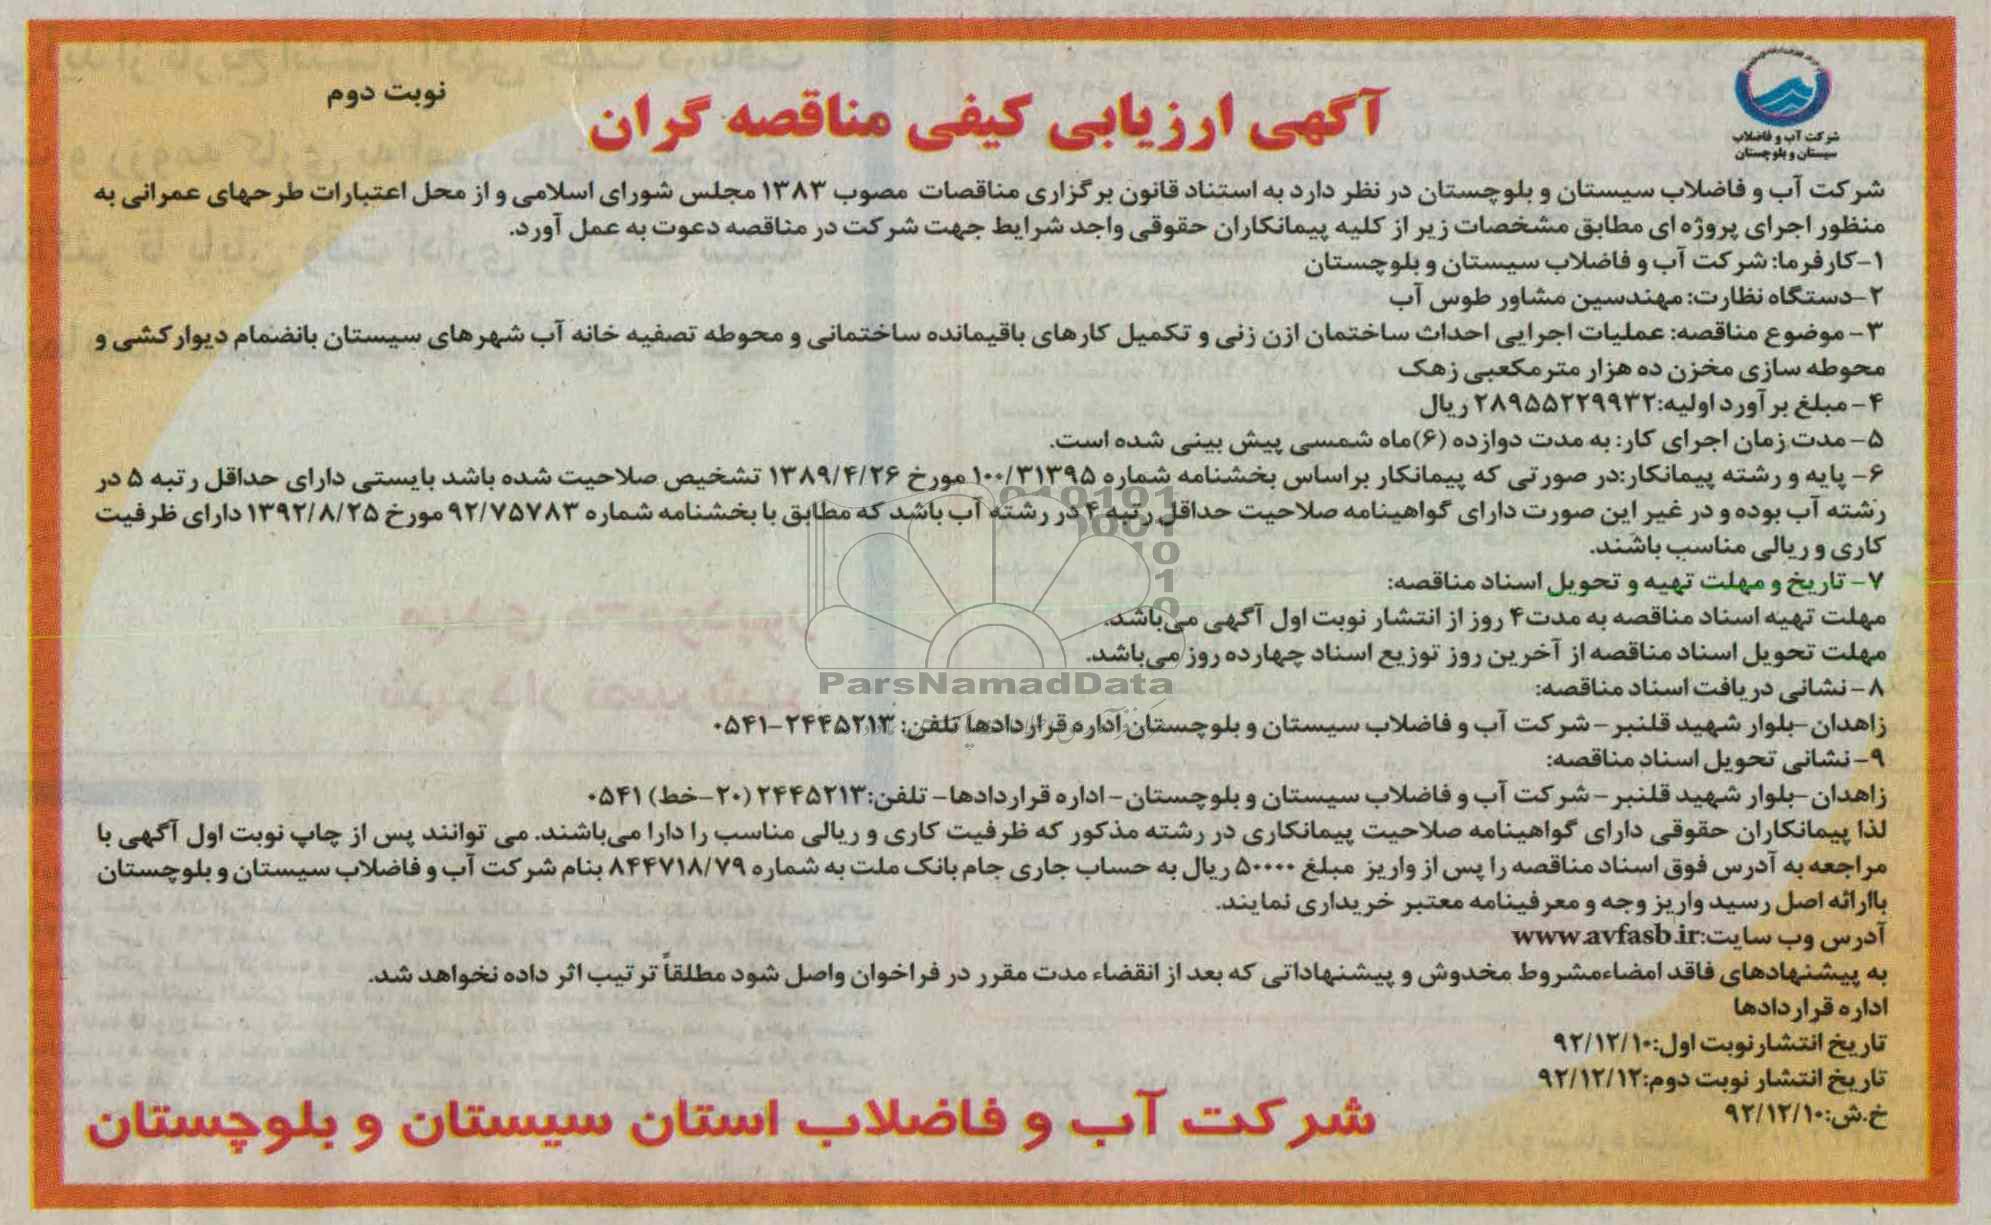 شرکت آب و فاضلاب
سیستان و بلوچستان
نوبت دوم
آگهی ارزیابی کیفی مناقصه گران
شرکت آب و فاضلاب سیستان و بلوچستان در نظر دارد به استناد قانون برگزاری مناقصات مصوب ۱۳۸۳ مجلس شورای اسلامی و از محل اعتبارات طرحهای عمرانی به
منظور اجرای پروژه ای مطابق مشخصات زیر از کلیه پیمانکاران حقوقی واجد شرایط جهت شرکت در مناقصه دعوت به عمل آورد.
۱-کارفرما: شرکت آب و فاضلاب سیستان و بلوچستان
۲-دستگاه نظارت: مهندسین مشاور طوس آب
۳- موضوع مناقصه: عملیات اجرایی احداث ساختمان ازن زنی و تکمیل کارهای باقیمانده ساختمانی و محوطه تصفیه خانه آب شهرهای سیستان بانضمام دیوارکشی و
محوطه سازی مخزن ده هزار مترمکعبی زهک
۴- مبلغ برآورد اولیه:۲۸۹۵۵۲۲۹۹۳۲ ریال
۵- مدت زمان اجرای کار: به مدت دوازده (۶)ماه شمسی پیش بینی شده است.
۶- پایه و رشته پیمانکار:در صورتی که پیمانکار براساس بخشنامه شماره ۱۰۰/۳۱۳۹۵ مورخ ۱۳۸۹/۴/۲۶ تشخیص صلاحیت شده باشد بایستی دارای حداقل رتبه ۵ در
رشته آب بوده و در غیر این صورت دارای گواهینامه صلاحیت حداقل رتبه ۴ در رشته آب باشد که مطابق با بخشنامه شماره ۹۲/۷۵۷۸۳ مورخ ۱۳۹۲/۸/۲۵ دارای ظرفیت
کاری و ریالی مناسب باشند.
۷- تاریخ و مهلت تهیه و تحویل اسناد مناقصه:
مهلت تهیه اسناد مناقصه به مدت۴ روز از انتشار نوبت اول آگهی می‌باشد.
مهلت تحویل اسناد مناقصه از آخرین روز توزیع اسناد چهارده روز می‌باشد.
ParsNamadData
۸- نشانی دریافت اسناد مناقصه:
زاهدان-بلوار شهید قلنبر- شرکت آب و فاضلاب سیستان و بلوچستان اداره قراردادها تلفن: ۲۴۴۵۲۱۳-۰۵۴۱
۹- نشانی تحویل اسناد مناقصه:
زاهدان-بلوار شهید قلنبر- شرکت آب و فاضلاب سیستان و بلوچستان- اداره قراردادها- تلفن:۲۴۴۵۲۱۳ (۲۰-خط) ۰۵۴۱
لذا پیمانکاران حقوقی دارای گواهینامه صلاحیت پیمانکاری در رشته مذکور که ظرفیت کاری و ریالی مناسب را دارا می‌باشند. می توانند پس از چاپ نوبت اول آگهی با
مراجعه به آدرس فوق اسناد مناقصه را پس از واریز مبلغ ۵۰۰۰۰ ریال به حساب جاری جام بانک ملت به شماره ۸۴۴۷۱۸/۷۹ بنام شرکت آب و فاضلاب سیستان و بلوچستان
باارائه اصل رسید واریز وجه و معرفینامه معتبر خریداری نمایند.
آدرس وب سایت:www.avfasb.ir
به پیشنهادهای فاقد امضاءمشروط مخدوش و پیشنهاداتی که بعد از انقضاء مدت مقرر در فراخوان واصل شود مطلقاً ترتیب اثر داده نخواهد شد.
اداره قراردادها
تاریخ انتشارنوبت اول:۹۲/۱۲/۱۰
تاریخ انتشار نوبت دوم:۹۲/۱۲/۱۲
خ.ش:۹۲/۱۲/۱۰
شرکت آب و فاضلاب استان سیستان و بلوچستان